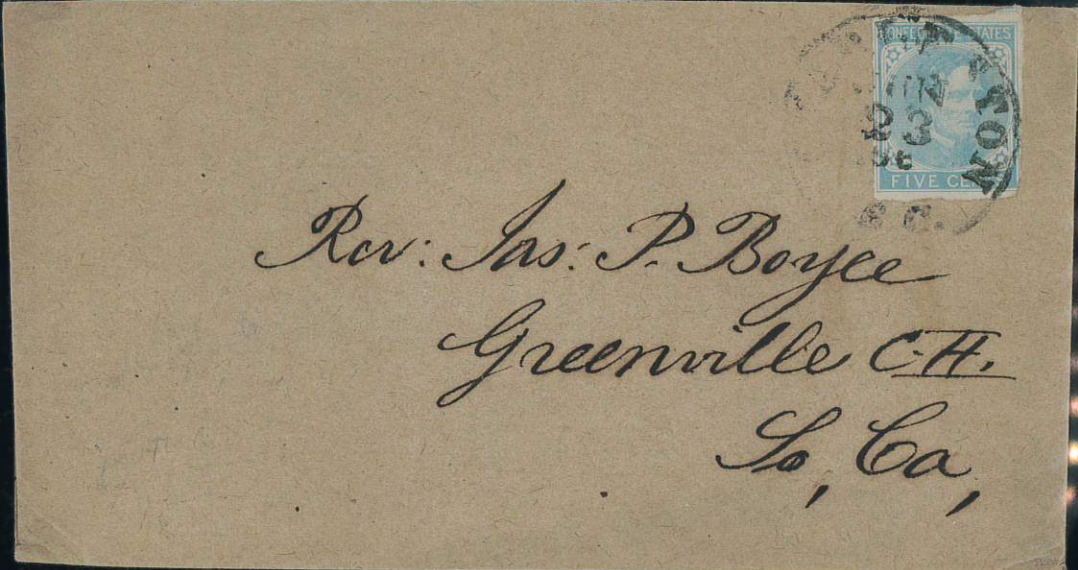 CONFEDERATE STATES
FIVE CENTS
23
S.C.
Rev: Jas: P. Boyce
Greenville C.H.
So, Ca,